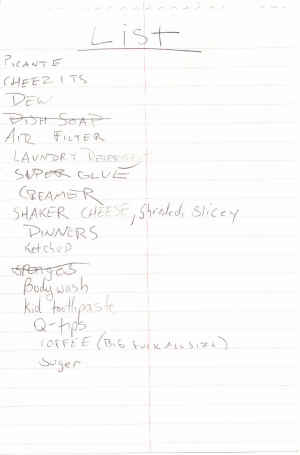 List
PICANTE
CHEEZ ITS
DEW
DISH SOAP
AIR FILTER
LAUNDRY
SUPER GLUE
CREAMER
SHAKER CHEESE, Shreded, slicey
DINNERS
Ketchup
sponges
Body wash
Kid toothpaste
Q-tips
COFFEE (BIG
Suger